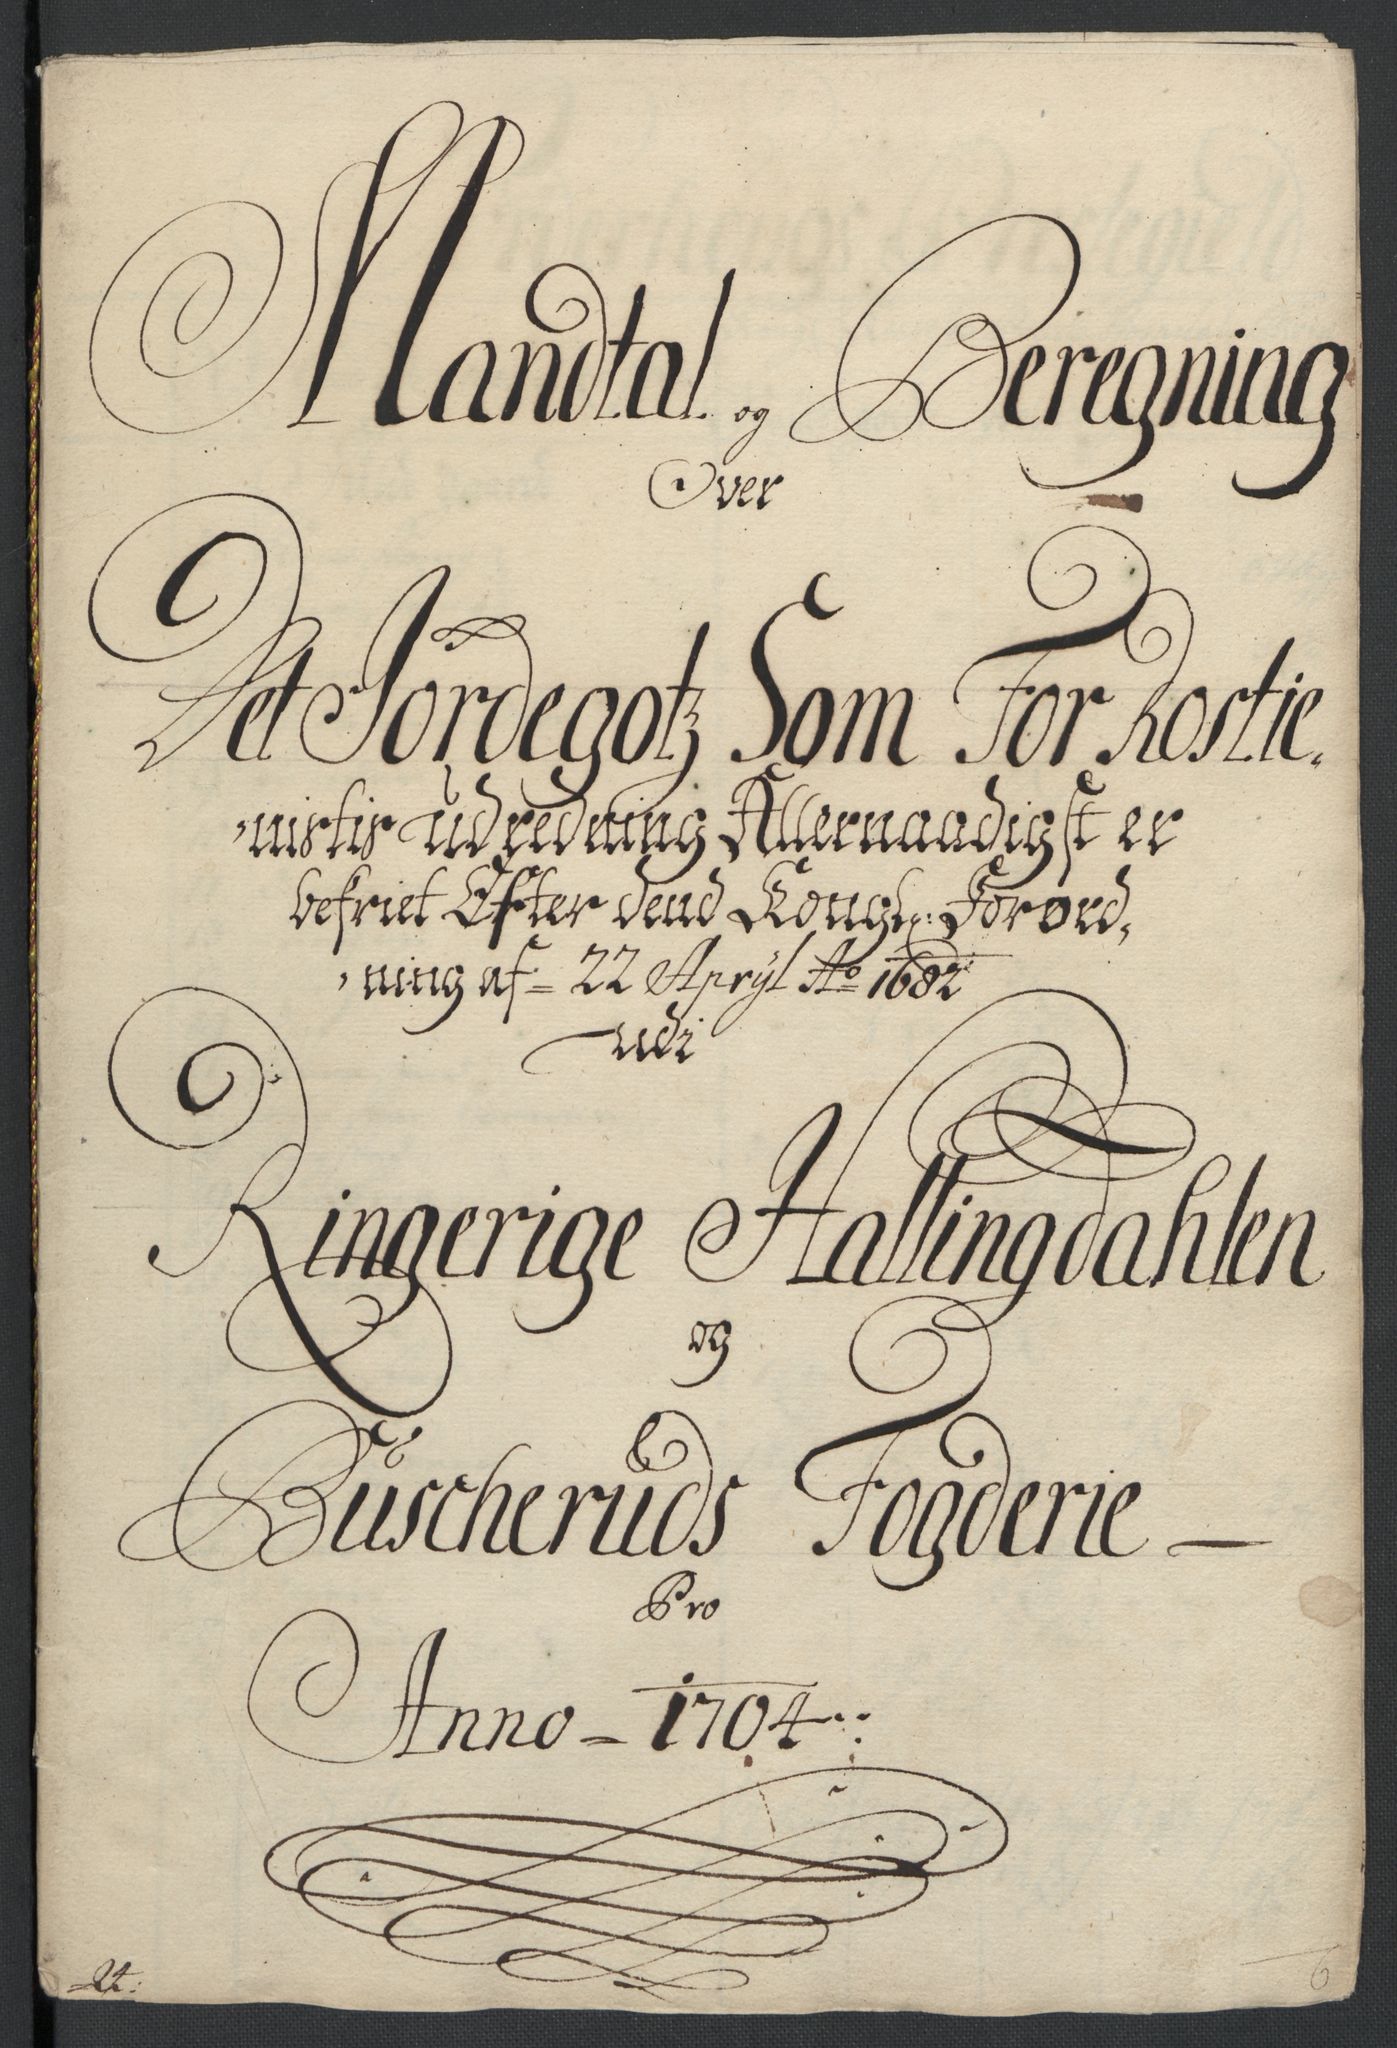 Mandtal og Beregning
Over
Det Jordegotz Som For Rostie-
-nistis udredning Allernaadigst er
befriet Efter dend Kongl: Forord-
-ning af 22 Apryl Ao 1682
udi
Ringerige Hallingdahlen
og
Buscheruds Fogderie —
Pro
Anno – 1704
6